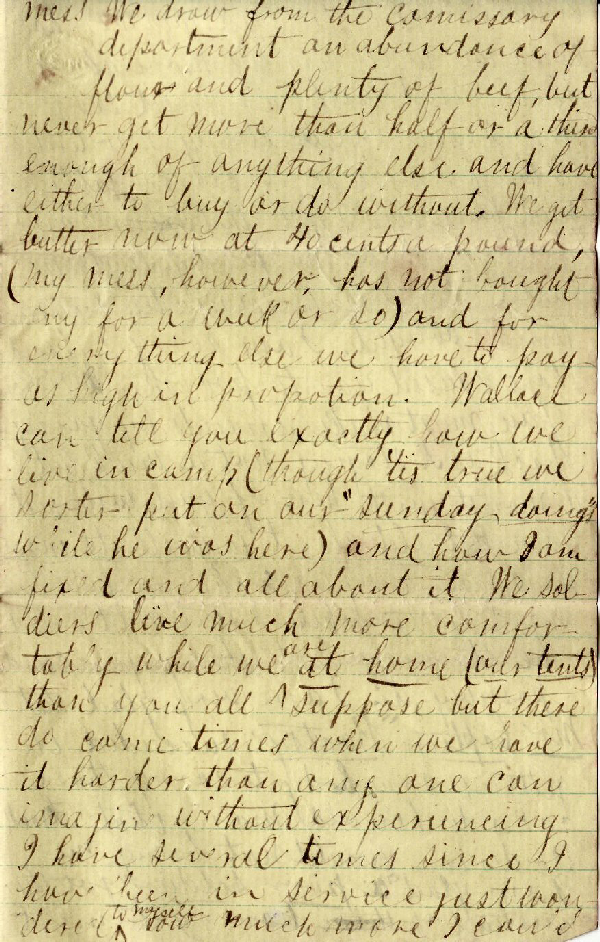 mess We draw from the comissary
department an abundance of
flour and plenty of beef, but
never get more than half or a third
enough of anything else and have
either to buy or do without. We get
butter now at 40 cents a pound,
(my mess, however, has not bought
any for a week or so) and for
everything else we have to pay
as high in propotion. Wallace
can tell you exactly how we
live in camp (though 'tis true we
sorter put on our "sunday doings"
while he was here) and how I am
fixed and all about it. We sol-
diers live much more comfor-
tably while we are at home (our tents)
than you all I suppose but there
do come times when we have
it harder than any one can
imagin without experiencing
I have several times since I
have been in service just won-
dered (to myself) how much more I could